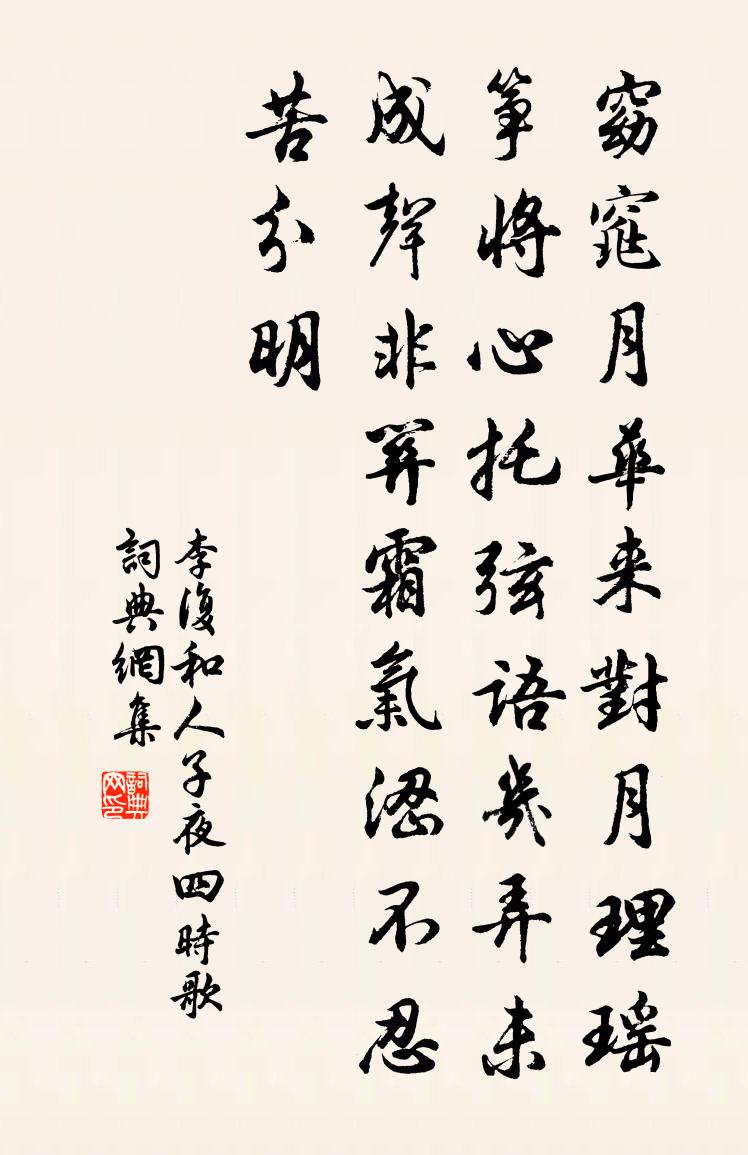 窈窕月華来對月理瑶
筝將心托弦語幾弄未
成聲非關霜氣澀不忍
苦分明
李復和人子夜四時歌
詞典網集
詞典网印